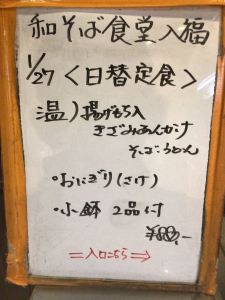 和そば食堂入福
1/27＜日替定食＞
温）揚げもち入
きざみあんかけ
そば・うどん
・おにぎり（さけ）
・小鉢 2品付
¥880,-
＝入口こちら⇒